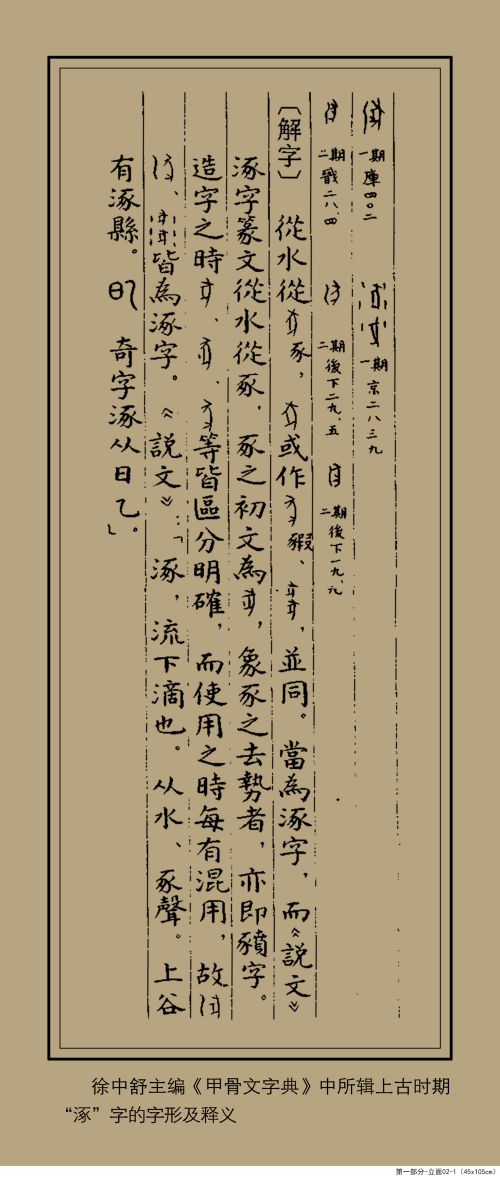 一期 庫四〇二 一期 京二八三九
二期 戩二八、四 二期 後下二九、五 二期 後下一九、九
〔解字〕 從水從豕,或作豭、,並同。當為涿字,而《說文》
涿字篆文從水從豖,豖之初文為,象豕之去勢者,亦即豶字。
造字之時、、等皆區分明確,而使用之時每有混用,故
、皆為涿字。《說文》:「涿,流下滴也。从水、豖聲。上谷
有涿縣。 奇字涿从日乙」。
徐中舒主编《甲骨文字典》中所辑上古时期
“涿”字的字形及释义
第一部分-立面02-1（45x105cm）